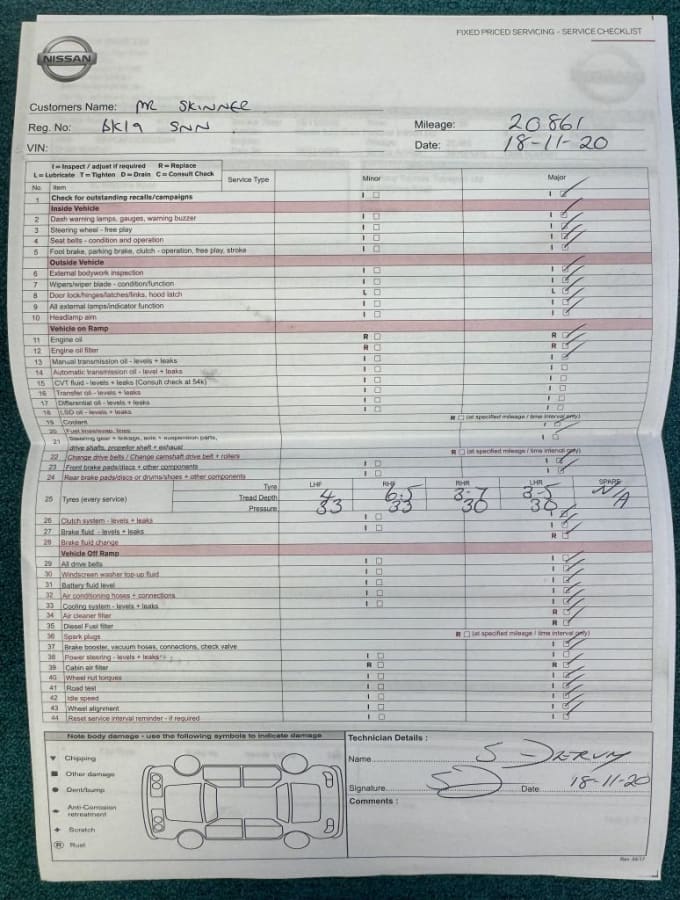 FIXED PRICED SERVICING - SERVICE CHECKLIST
NISSAN
Customers Name: MR SKINNER
Reg. No: BK19 SNN
Mileage: 20861
VIN:
Date: 18-11-20
I = Inspect / adjust if required R = Replace
L = Lubricate T = Tighten D = Drain C = Consult Check
Service Type Minor Major
No Item
1 Check for outstanding recalls/campaigns I I
Inside Vehicle
2 Dash warning lamps, gauges, warning buzzer I I
3 Steering wheel - free play I I
4 Seat belts - condition and operation I I
5 Foot brake, parking brake, clutch - operation, free play, stroke I I
Outside Vehicle
6 External bodywork inspection I I
7 Wipers/wiper blade - condition/function I I
8 Door lock/hinges/latches/links, hood latch L L
9 All external lamps/indicator function I I
10 Headlamp aim I I
Vehicle on Ramp
11 Engine oil R R
12 Engine oil filter R R
13 Manual transmission oil - levels + leaks I I
14 Automatic transmission oil - level + leaks I I
15 CVT fluid - levels + leaks (Consult check at 54k) I I
16 Transfer oil - levels + leaks I I
17 Differential oil - levels + leaks I I
18 LSD oil - levels + leaks I I
19 Coolant R (at specified mileage / time interval only)
20 Fuel lines I
21 Steering gear + linkage, axle + suspension parts,
drive shafts, propeller shaft + exhaust I
22 Change drive belts / Change camshaft drive belt + rollers R (at specified mileage / time interval only)
23 Front brake pads/discs + other components I I
24 Rear brake pads/discs or drums/shoes + other components I I
25 Tyres (every service)
Tyre LHF RHF RHR LHR SPARE
Tread Depth 4 6.5 3.7 3.5 N/A
Pressure 33 33 30 30
26 Clutch system - levels + leaks I I
27 Brake fluid - levels + leaks I I
28 Brake fluid change R
Vehicle Off Ramp
29 All drive belts I I
30 Windscreen washer top-up fluid I I
31 Battery fluid level I I
32 Air conditioning hoses + connections I I
33 Cooling system - levels + leaks I I
34 Air cleaner filter R
35 Diesel Fuel filter R
36 Spark plugs R (at specified mileage / time interval only)
37 Brake booster, vacuum hoses, connections, check valve I
38 Power steering - levels + leaks I I
39 Cabin air filter R R
40 Wheel nut torques I I
41 Road test I I
42 Idle speed I I
43 Wheel alignment I I
44 Reset service interval reminder - if required I I
Note body damage - use the following symbols to indicate damage
Chipping
Other damage
Dent/bump
Anti-Corrosion
retreatment
Scratch
R Rust
Technician Details :
Name
Signature Date 18-11-20
Comments :